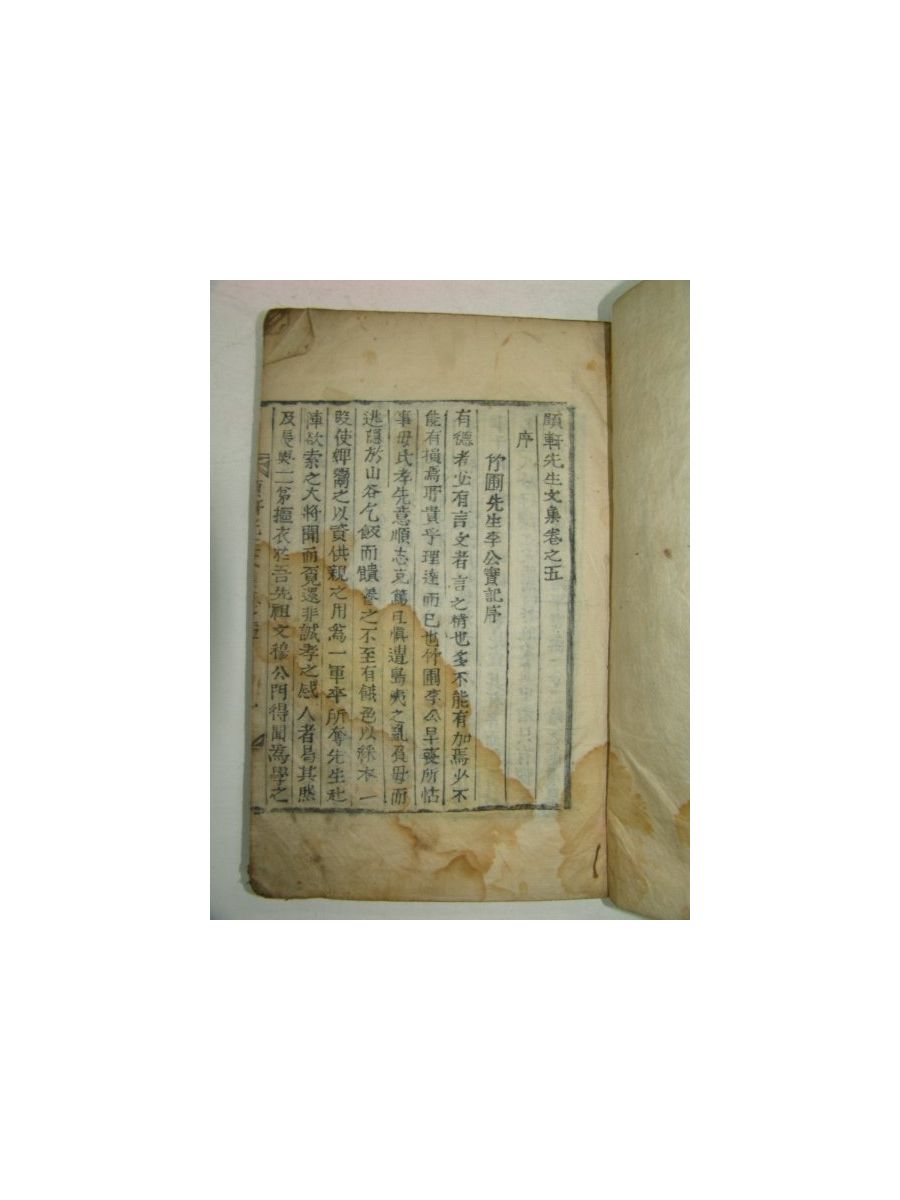 頤軒先生文集卷之五
序
竹圃先生李公實記序
有德者必有言文者言之精也多不能有加焉少不
能有損焉所貴乎理達而已也竹圃李公早喪所怙
事母氏孝先意順志克篤且愼遭島夷之亂負母而
逃隱於山谷乞飯而饋養之不至有餓色以綵衣一
段使婢鬻之以資供親之用爲一軍卒所奪先生赴
陣欲索之大將聞而覓還非誠孝之感人者曷其然
及長與二弟摳衣於吾先祖文穆公門得聞爲學之